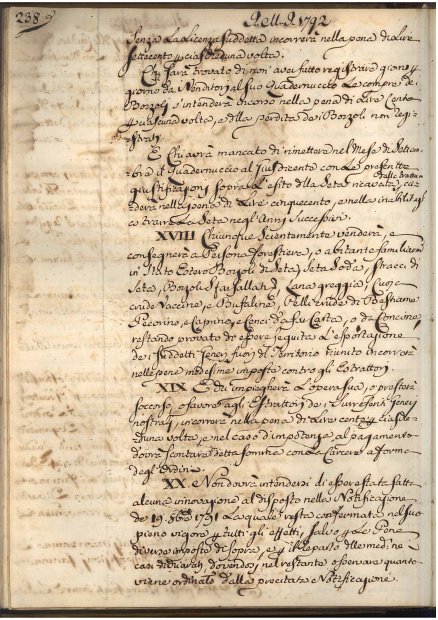 238
A dì 1792
Senza La Licenza suddetta incorrerà nella pena di Lire
settecento p ciascheduna volta.
Chi sarà trovato di non aver fatto registrare giorno p
giorno da i Venditori al suo Quadernuccio Le compre de
Bozzoli s'intenderà incorso nella pena di Lire Cento
p ciascuna volta, e della perdita dei Bozzoli non regi=
strati.
E Chi avrà mancato di rimettere nel Mese di Settem=
bre il Quadernuccio al Giusdicente con Le presenti
giustificazioni sopra L'esito della Seta ricavata, ca=
derà nella pena di Lire cinquecento, e nella inabilità
a trarre La Seta negl'Anni Successivi.
XVIII Chiunque Scientemente venderà, e
consegnerà a Persona forestiera, o abitante familiarmente
in Stato Estero Bozzoli di Seta, Seta Soda, Stracci di
Seta, Bozzoli sfarfallati, Lana greggia, Cuoia
crude Vaccine, e Bufaline, Pelli crude di Bestiame
Pecorino, e Caprino, e Conci da far Carta, o da Concime,
restando provato di essere seguita L'Esportazione
de i suddetti Generi fuori di Territorio riunito incorrerà
nelle pene medesime imposte contro gli Estrattori.
XIX E chi impiegherà L'opera sua, o presterà
soccorso, o favore agli Estrattori de i surriferiti generi
nostrali, incorrerà nella pena di Lire cento p ciasche=
duna volta, e nel caso d'impotenza al pagamento
dovrà scontare detta somma con La Carcere a forma
degl'Ordini.
XX. Non dovrà intendersi di essere stata fatta
alcuna innovazione al disposto nella Notificazione
de' 19. 8bre 1791 La quale resta confermata nel suo
pieno vigore p tutti gli effetti, salvo p Le Pene
diverse imposte di sopra, e p il
dovendosi nel restante osservare quanto
viene ordinato dalla precitata Notificazione